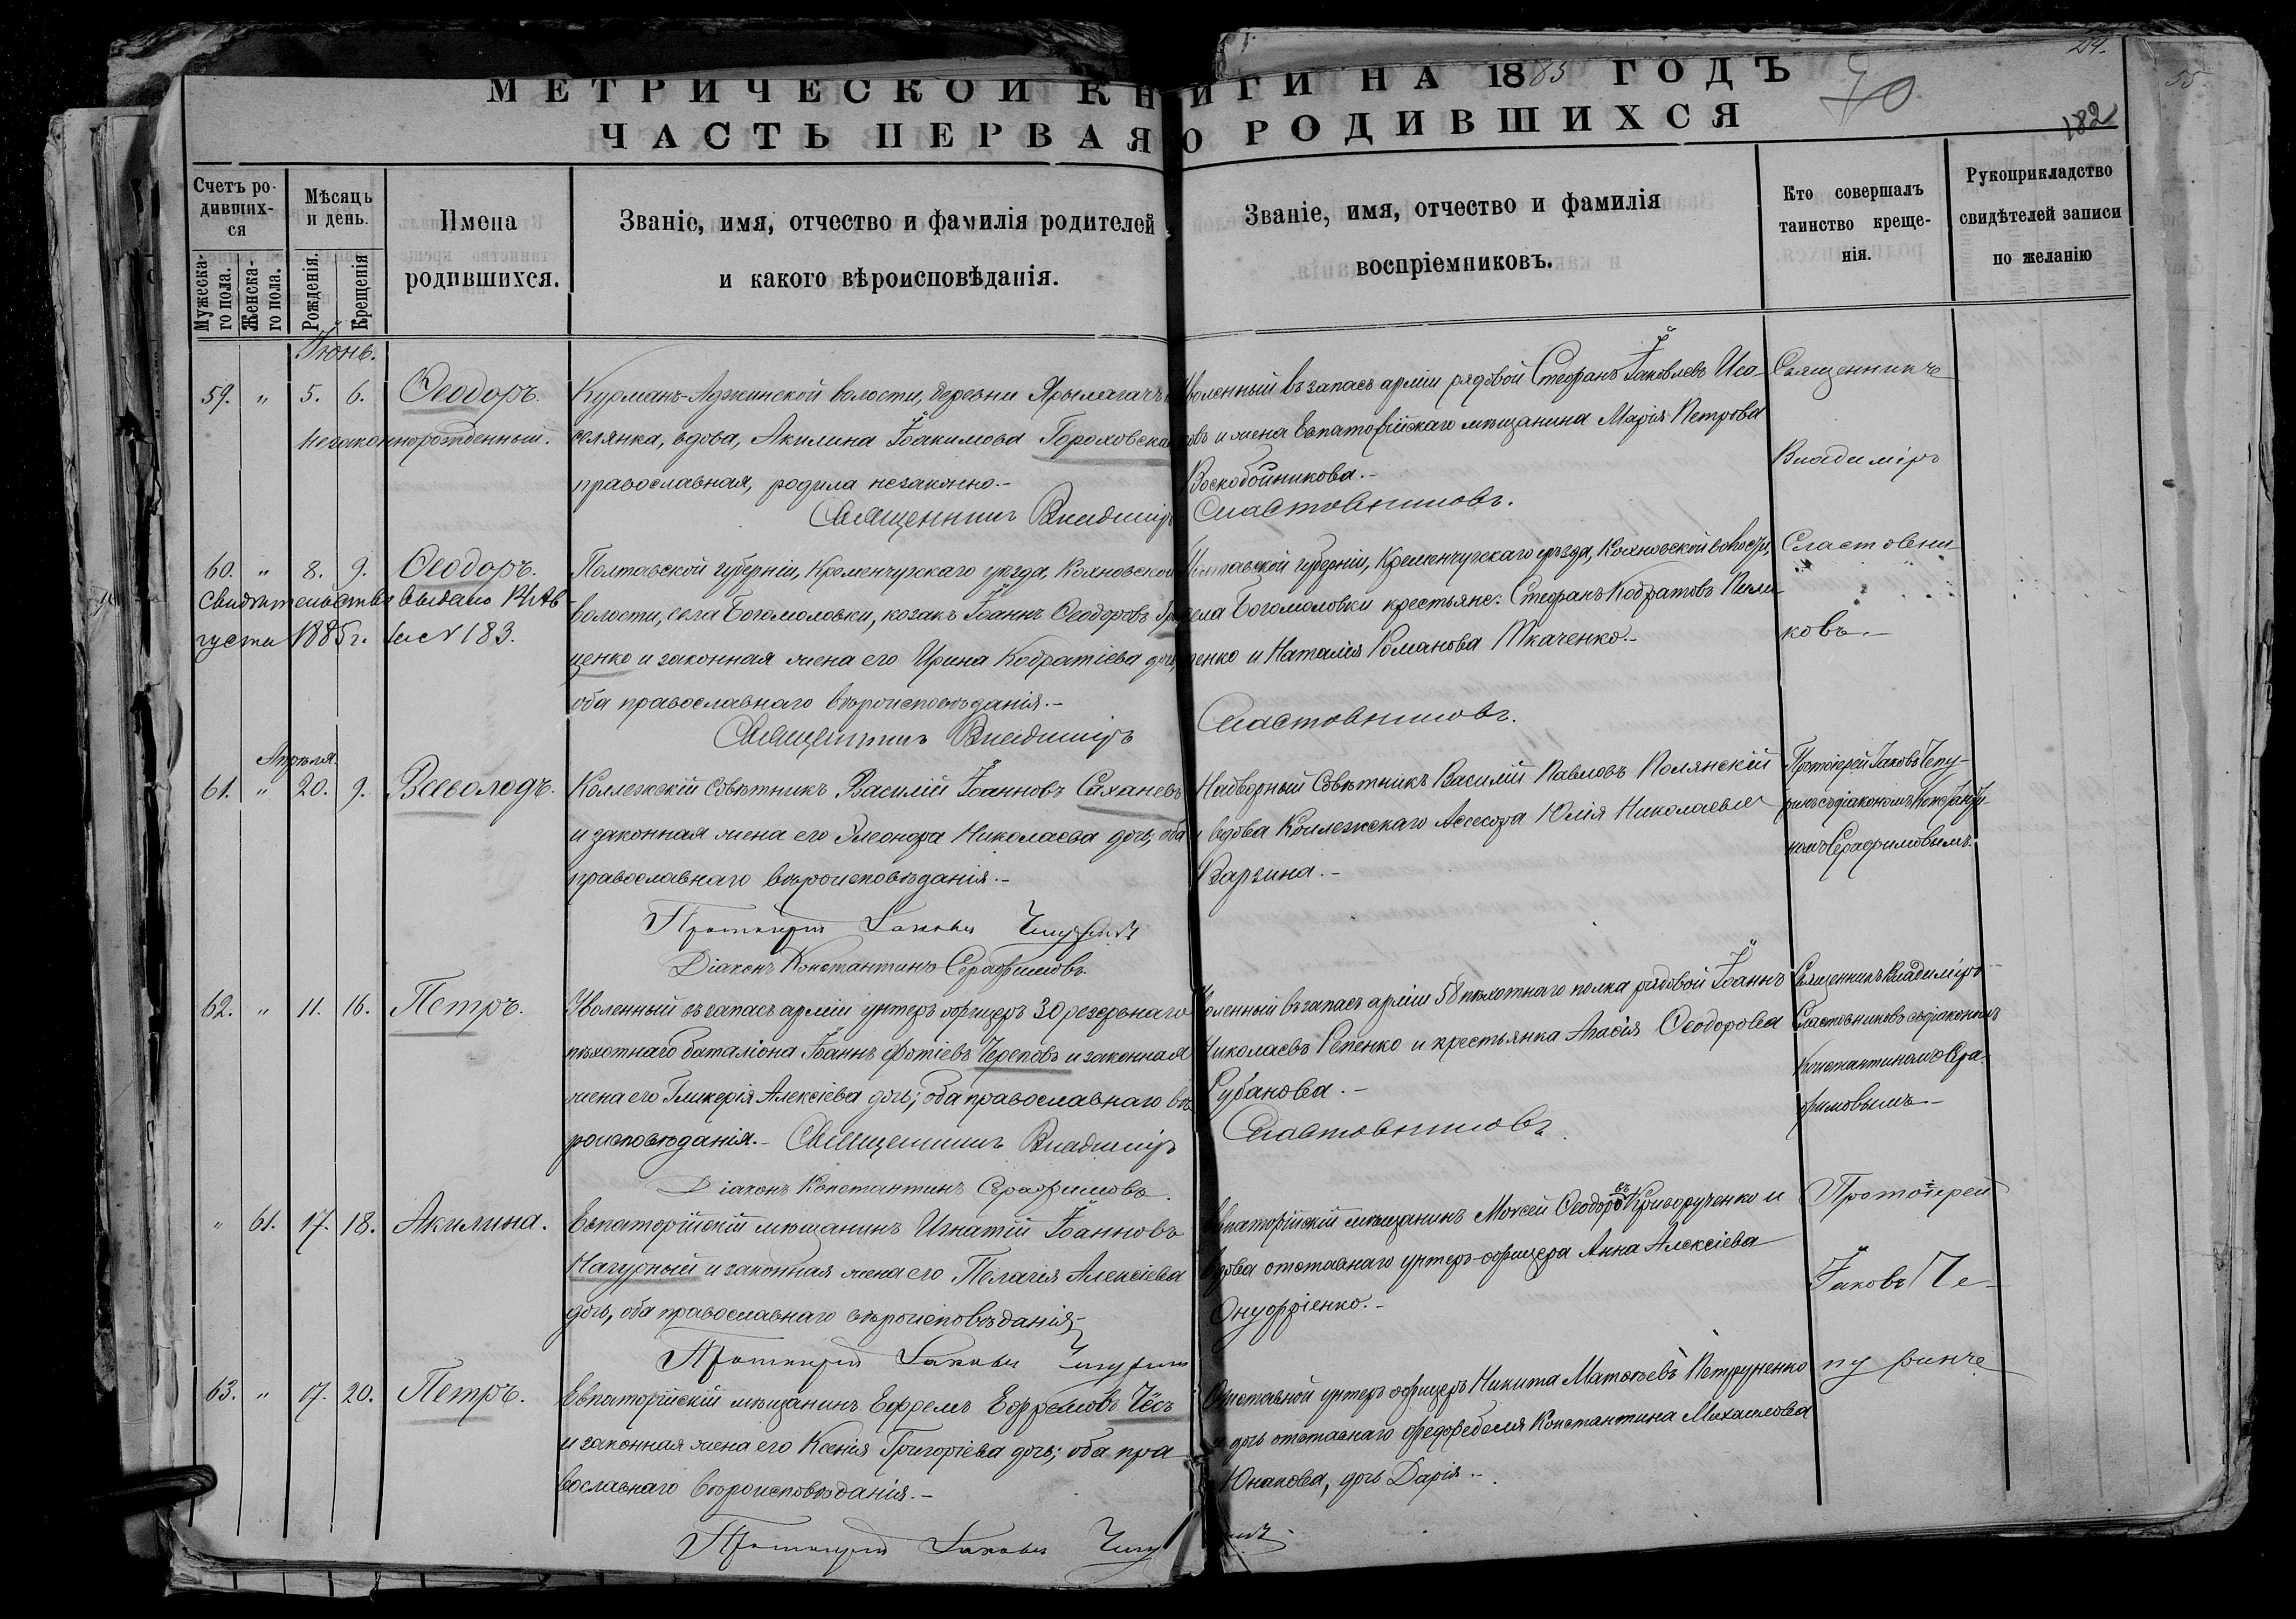 МЕТРИЧЕСКОЙ КНИГИ НА 1885 ГОДЪ
ЧАСТЬ ПЕРВАЯ О РОДИВШИХСЯ
70
182
55.
Счетъ родившихся
Мужескаго пола.
Женскаго пола.
Мѣсяцъ и день.
Рожденія.
Крещенія
Имена родившихся.
Званіе, имя, отчество и фамилія родителей
и какого вѣроисповѣданія.
Званіе, имя, отчество и фамилія
воспріемниковъ.
Кто совершалъ
таинство креще-
нія.
Рукоприкладство
свидѣтелей записи
по желанію
Іюнь.
59. " 5. 6. Ѳеодоръ.
незаконнорожденный.
Курманъ-Аджинской волости, деревни Ярылгачъ
селянка, вдова, Акилина Іоакимова Гороховская
православная, родила незаконно.-
Священникъ Владиміръ Сластовниковъ.
Уволенный въ запасъ арміи рядовой Стефанъ Іаковлевъ Иса-
ковъ и жена Евпаторійскаго мѣщанина Марія Петрова
Воскобойникова.-
Священникъ
Владиміръ
Сластовни-
ковъ.-
60. " 8. 9. Ѳеодоръ.
Свидѣтельство выдано 14 Ав-
густа 1885 г. за № 183.
Полтавской губерніи, Кременчугскаго уѣзда, Кохновской
волости, села Богомоловки, козакъ Іоаннъ Ѳеодоровъ
ценко и законная жена его Ирина Кодратіева дочь,
оба православнаго вѣроисповѣданія.-
Священникъ Владиміръ Сластовниковъ.
Полтавской губерніи, Кременчугскаго уѣзда, Кохновской волости,
села Богомоловки крестьяне: Стефанъ Кодратовъ
ренко и Наталія Романова Ткаченко.-
Апрѣля.
61. " 20. 9. Всеволодъ.
Коллежскій Совѣтникъ Василій Іоанновъ Саханевъ
и законная жена его Элеонора Николаева дочь, оба
православнаго вѣроисповѣданія.-
Протоіерей Іаковъ Чепуринъ
Діаконъ Константинъ Серафимовъ.
Надворный Совѣтникъ Василій Павловъ Полянскій
и вдова Коллежскаго Асесора Юлія Николаева
Варзина.-
Протоіерей Іаковъ Чепу-
ринъ съ діакономъ Константи-
номъ Серафимовымъ.
62. " 11. 16. Петръ.
Уволенный въ запасъ арміи унтеръ офицеръ 30 резервнаго
пѣхотнаго баталіона Іоаннъ Фотіевъ Череповъ и законная
жена его Гликерія Алексіева дочь; оба православнаго вѣ-
роисповѣданія.- Священникъ Владиміръ Сластовниковъ.
Діаконъ Константинъ Серафимовъ.
Уволенный въ запасъ арміи 58 пѣхотнаго полка рядовой Іоаннъ
Николаевъ Репенко и крестьянка Агафія Ѳеодорова
Рубанова.-
Священникъ Владиміръ
Сластовниковъ съ діакономъ
Константиномъ Сера-
фимовымъ.-
" 61. 17. 18. Акилина.
Евпаторійскій мѣщанинъ Игнатій Іоанновъ
Нагурный и законная жена его Пелагія Алексіева
дочь, оба православнаго вѣроисповѣданія.-
Протоіерей Іаковъ Чепуринъ
Евпаторійскій мѣщанинъ Моѵсей Ѳеодоровъ Криворученко и
вдова отставнаго унтеръ-офицера Анна Алексіева
Онуфріенко.-
Протоіерей
Іаковъ Че-
пуринъ
63. " 17. 20. Петръ.
Евпаторійскій мѣщанинъ Ефремъ Ефремовъ Чёсъ
и законная жена его Ксенія Григоріева дочь; оба пра-
вославнаго вѣроисповѣданія.-
Протоіерей Іаковъ Чепуринъ
Отставной унтеръ офицеръ Никита Матѳеевъ Петруненко
и дочь отставнаго фельдфебеля Константина Михаилова
Юнакова, дочь Дарія.-